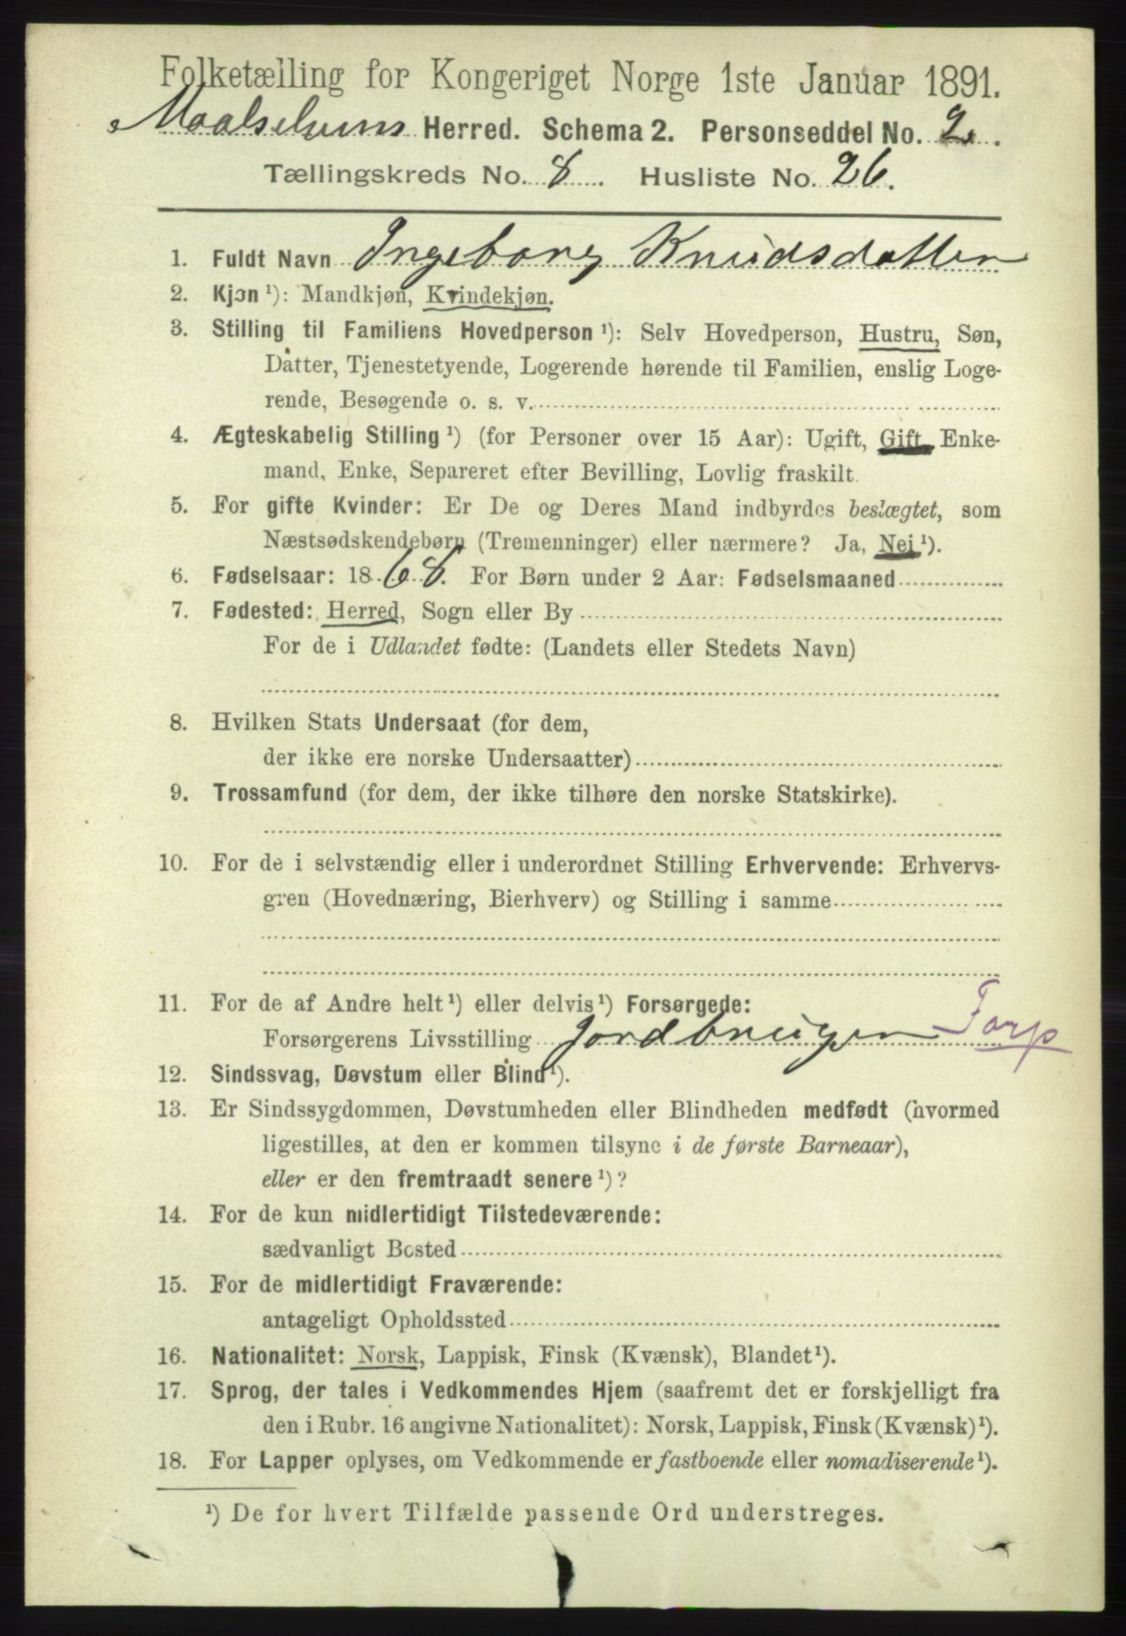 Folketælling for Kongeriget Norge 1ste Januar 1891.
Maalselvens Herred. Schema 2. Personseddel No. 2.
Tællingskreds No. 8. Husliste No. 26.
1. Fuldt Navn Ingeborg Knudsdatter
2. Kjøn ¹): Mandkjøn, Kvindekjøn.
3. Stilling til Familiens Hovedperson ¹): Selv Hovedperson, Hustru, Søn,
Datter, Tjenestetyende, Logerende hørende til Familien, enslig Loge-
rende, Besøgende o. s. v.
4. Ægteskabelig Stilling ¹) (for Personer over 15 Aar): Ugift, Gift, Enke-
mand, Enke, Separeret efter Bevilling, Lovlig fraskilt.
5. For gifte Kvinder: Er De og Deres Mand indbyrdes beslægtet, som
Næstsødskendebørn (Tremenninger) eller nærmere? Ja, Nei ¹).
6. Fødselsaar: 1868. For Børn under 2 Aar: Fødselsmaaned
7. Fødested: Herred, Sogn eller By
For de i Udlandet fødte: (Landets eller Stedets Navn)
8. Hvilken Stats Undersaat (for dem,
der ikke ere norske Undersaatter)
9. Trossamfund (for dem, der ikke tilhøre den norske Statskirke).
10. For de i selvstændig eller i underordnet Stilling Erhvervende: Erhvervs-
gren (Hovednæring, Bierhverv) og Stilling i samme
11. For de af Andre helt ¹) eller delvis ¹) Forsørgede:
Forsørgerens Livsstilling Jordbruger Forp
12. Sindssvag, Døvstum eller Blind ¹).
13. Er Sindssygdommen, Døvstumheden eller Blindheden medfødt (hvormed
ligestilles, at den er kommen tilsyne i de første Barneaar),
eller er den fremtraadt senere ¹)?
14. For de kun midlertidigt Tilstedeværende:
sædvanligt Bosted
15. For de midlertidigt Fraværende:
antageligt Opholdssted
16. Nationalitet: Norsk, Lappisk, Finsk (Kvænsk), Blandet ¹).
17. Sprog, der tales i Vedkommendes Hjem (saafremt det er forskjelligt fra
den i Rubr. 16 angivne Nationalitet): Norsk, Lappisk, Finsk (Kvænsk) ¹).
18. For Lapper oplyses, om Vedkommende er fastboende eller nomadiserende ¹).
¹) De for hvert Tilfælde passende Ord understreges.